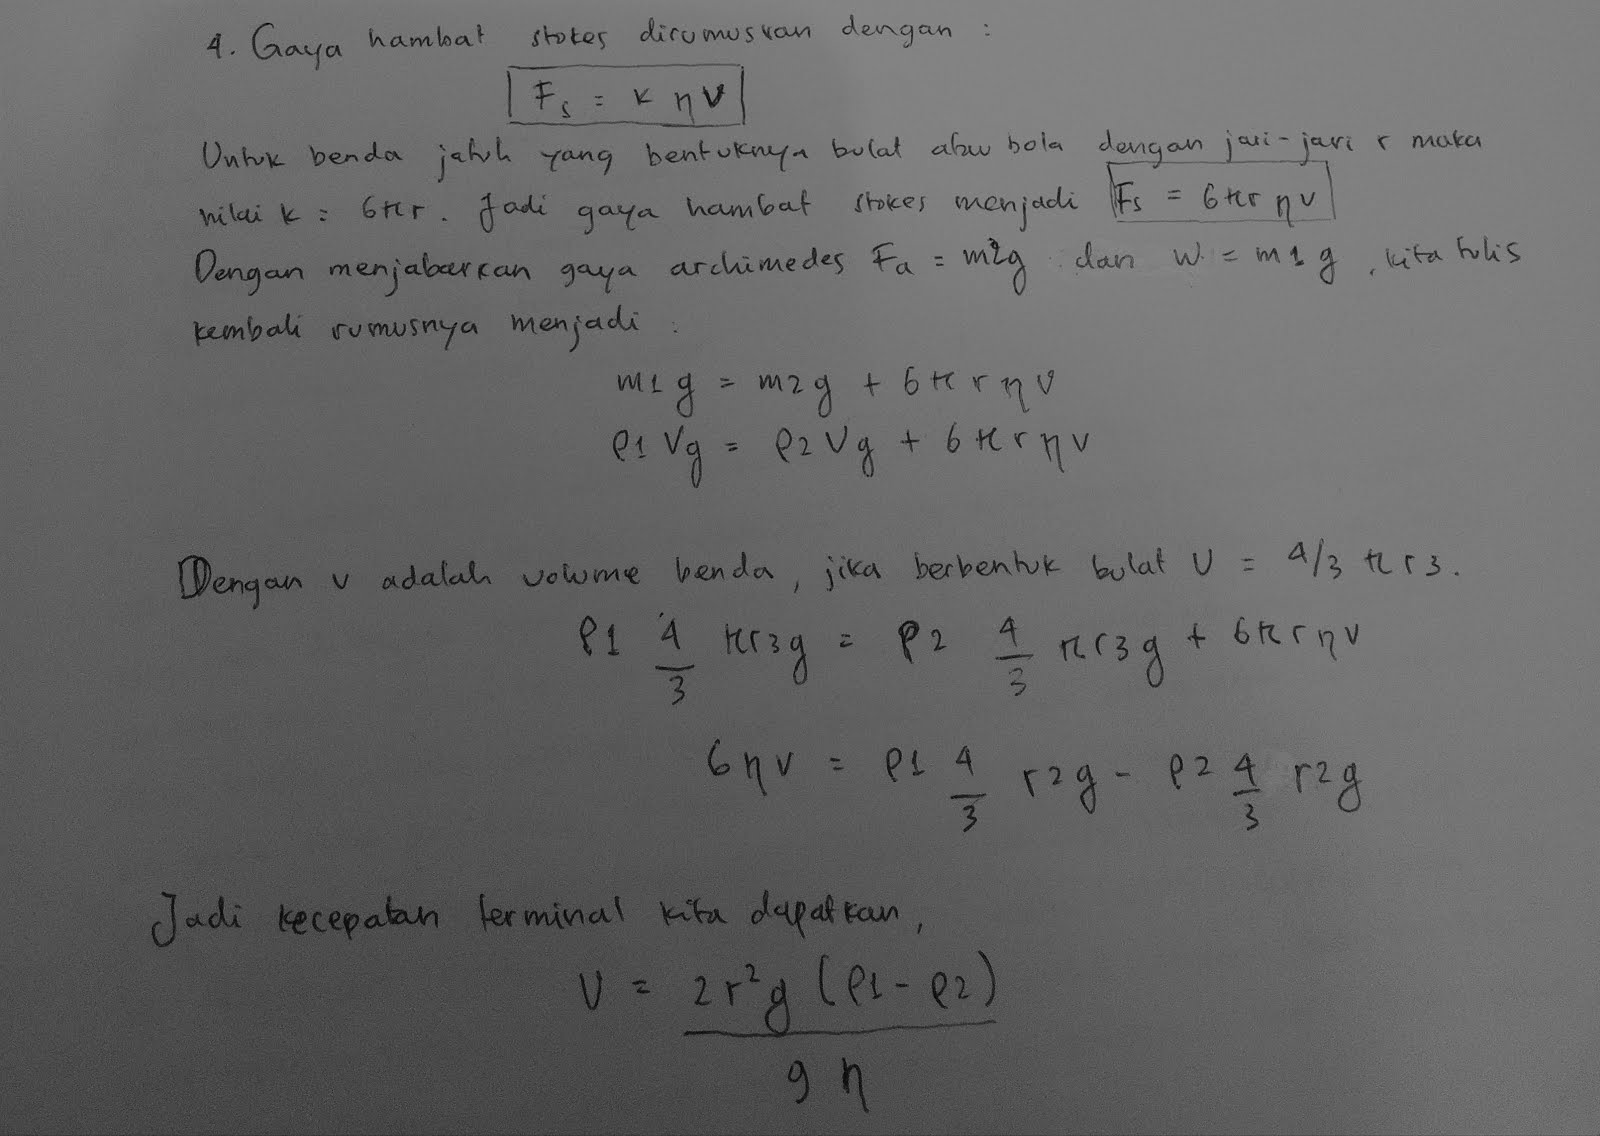 4. Gaya hambat stokes dirumuskan dengan :
Fs = k η v
Untuk benda jatuh yang bentuknya bulat atau bola dengan jari-jari r maka
nilai k = 6πr. Jadi gaya hambat stokes menjadi Fs = 6πr η v
Dengan menjabarkan gaya archimedes Fa = m2g dan W = m1 g , kita tulis
kembali rumusnya menjadi :
m1 g = m2g + 6 π r η v
ρ1 Vg = ρ2 Vg + 6 π r η v
Dengan v adalah volume benda, jika berbentuk bulat V = 4/3 π r3.
ρ1 4/3 πr3g = ρ2 4/3 πr3g + 6π r η v
6ηv = ρ1 4/3 r2g - ρ2 4/3 r2g
Jadi kecepatan terminal kita dapatkan,
V = 2r²g (ρ1 - ρ2) / 9 η